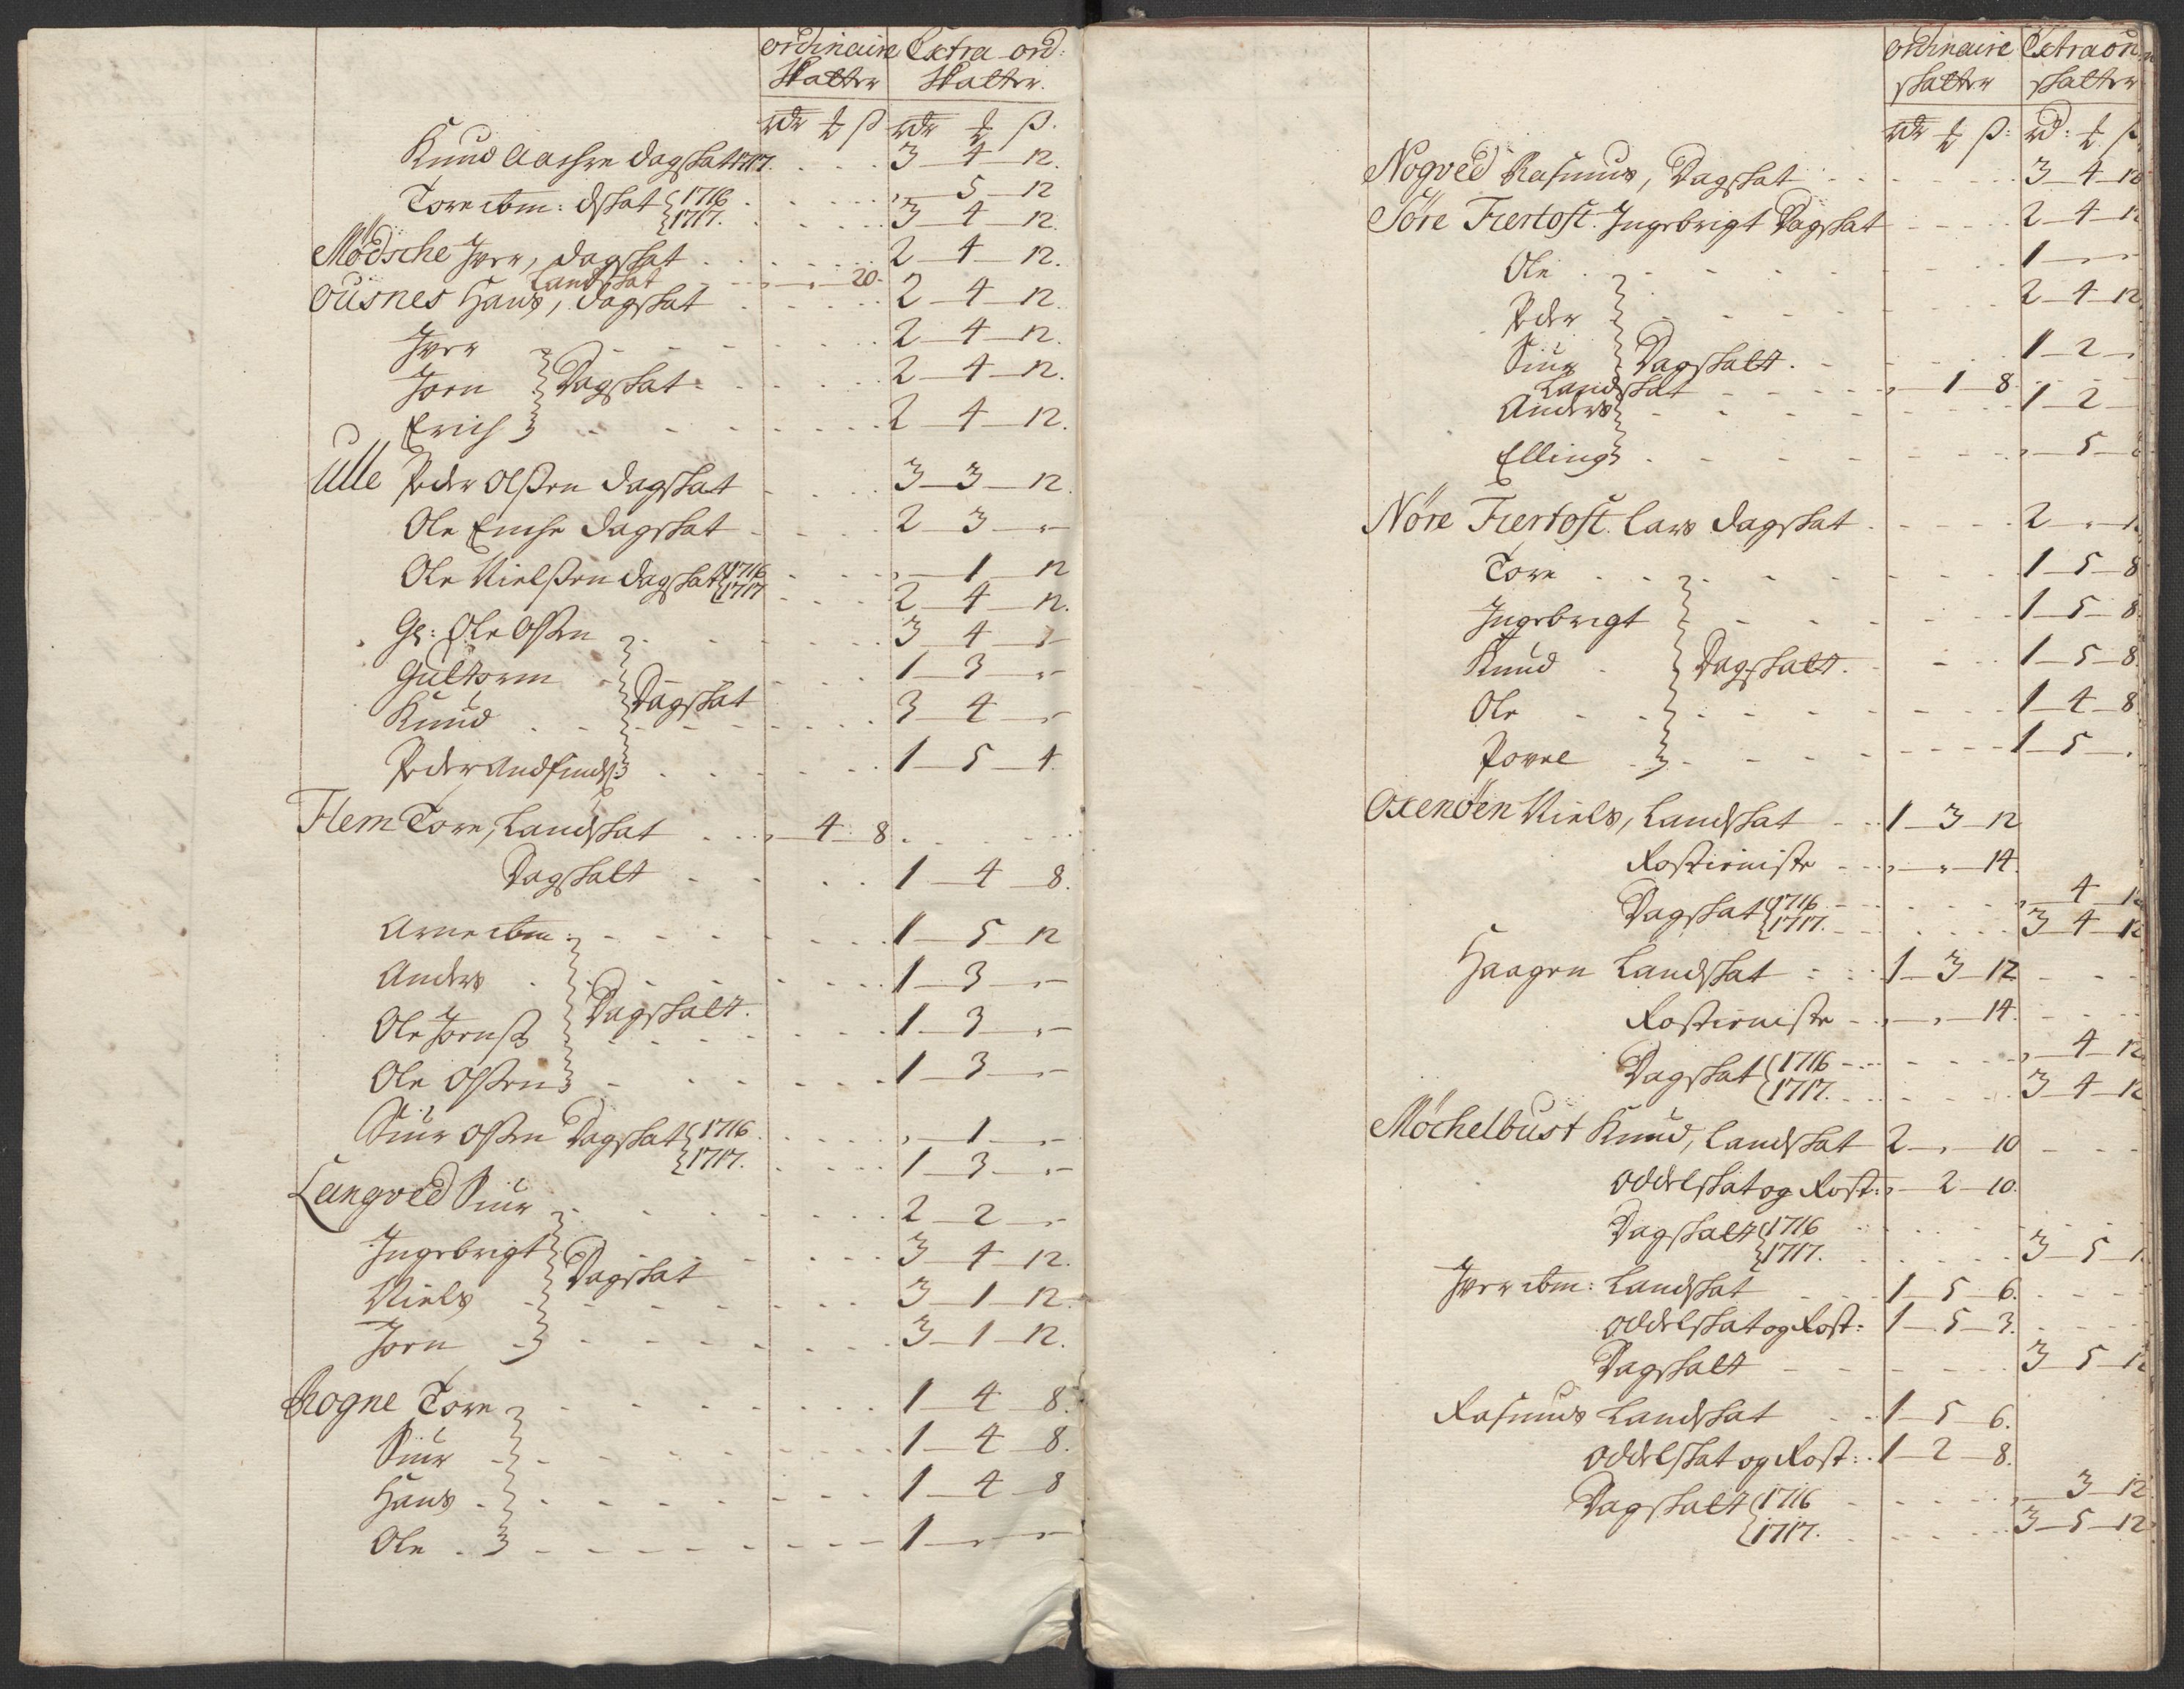 ordinaire Extra ord:
Skatter Skatter.
rdr ß rdr ß.
Knud Aachre dagskat 1717. 3 – 4 – 12.
Tore ibm: dskat { 1716 „ – 5 – 12
{ 1717. 3 – 4 – 12.
Mödsche Iver, dagskat 2 – 4 – 12.
Landskat „ – „ – 20.
Ousnes Hans, dagskat 2 – 4 – 12.
Iver 2 – 4 – 12.
Jorn } Dagskat 2 – 4 – 12.
Erich 2 – 4 – 12.
Ulle Peder Olßen dagskat 3 – 3 – 12.
Ole dagskat 2 – 3 – „
Ole Nielßen dagskat { 1716 „ – 1 – 12
{ 1717 2 – 4 – 12.
Gl: Ole Olßen 3 – 4 – „
Guttorm 1 – 3 – „
Knud } Dagskat 3 – 4 – „
Peder Andfinds: 1 – 5 – 4.
Flem Tore, Landskat „ – 4 – 8
Dagskatt 1 – 4 – 8.
Arne ibm: 1 – 5 – 12
Anders 1 – 3 – „
Ole Jornß } Dagskatt. 1 – 3 – „
Ole Olßen 1 – 3 – „
Siur Olßen Dagskat { 1716 „ – 1 – „
{ 1717. 1 – 3 – „
Langved Siur 2 – 2 – „
Ingebrigt 3 – 4 – 12.
Niels } Dagskat 3 – 1 – 12.
Jorn 3 – 1 – 12.
Rogne Tore 1 – 4 – 8.
Siur 1 – 4 – 8.
Hans 1 – 4 – 8
Ole 1 – „ – „
ordinaire Extraor
skatter skatter
rdr ß: rd: ß
Nogved Rasmus, Dagskat 3 – 4 – 12
Söre Fiertoft. Ingebrigt Dagskat 2 – 4 – 12
Ole 1 – „ – „
Peder 2 – 4 – 12
Siur } Dagskatt. 1 – 2 – „
Landskat „ – 1 – 8
Anders 1 – 2 –
Elling „ – 5 – 8
Nöre Fiertoft. Lars dagskat 2 – „ – 12
Tore 1 – 5 – 8
Ingebrigt 1 – 5 – 8
Knud } Dagskatt. 1 – 5 – 8.
Ole 1 – 4 – 8.
Povel 1 – 5 – „
Oxenöen Niels, Landskat 1 – 3 – 12
Rostieniste „ – „ – 14.
Dagskat { 1716 „ – 4 – 12
{ 1717. 3 – 4 – 12
Haagen Landskat 1 – 3 – 12
Rostieniste „ – „ – 14.
Dagskat { 1716 „ – 4 – 12
{ 1717. 3 – 4 – 12
Möchelbust Knud, Landskat 2 – „ – 10
Oddelskat og Rost: „ – 2 – 10.
Dagskatt { 1716
{ 1717. 3 – 5 – 12
Iver ibm: Landskat 1 – 5 – 6.
Oddelskat og Rost: 1 – 5 – 3.
Dagskatt 3 – 5 – 12
Rasmus Landskat 1 – 5 – 6.
Oddelskat og Rost: 1 – 2 – 8.
Dagskatt { 1716 „ – 3 – 12.
{ 1717. 3 – 5 – 12